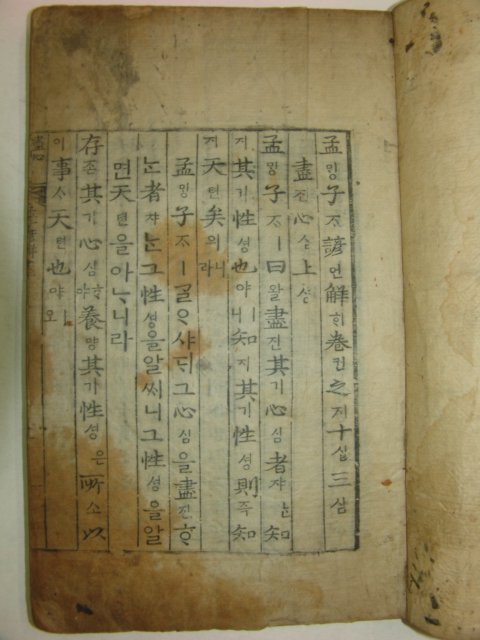 孟ᄆᆡᆼ子ᄌᆞ諺언解ᄒᆡ卷권之지十십三삼
盡진心심上샹
孟ᄆᆡᆼ子ᄌᆞㅣ曰왈盡진其기心심者쟈ᄂᆞᆫ知
지其기性셩也야ㅣ니知지其기性셩則즉知
지天텬矣의니라
孟ᄆᆡᆼ子ᄌᆞㅣᄀᆞᆯᄋᆞ샤ᄃᆡ그心심을盡진ᄒᆞ
ᄂᆞᆫ者쟈ᄂᆞᆫ그性셩을알ᄊᆡ니그性셩을알
면天텬을아ᄂᆞ니라
存존其기心심ᄒᆞ야養양其기性셩은所소以
이事ᄉᆞ天텬也야ㅣ오
盡心